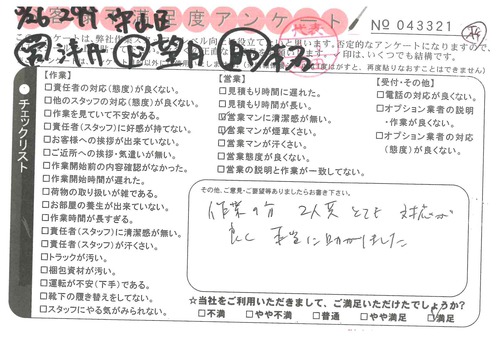 お客様満足度アンケート
No 043321
【作業】
□責任者の対応(態度)が良くない。
□他のスタッフの対応(態度)が良くない。
□作業を見ていて不安がある。
□責任者(スタッフ)に好感が持てない。
□お客様への挨拶が出来ていない。
□ご近所への挨拶・気遣いが無い。
□作業開始前の内容確認がなかった。
□作業開始時間が遅れた。
□荷物の取り扱いが雑である。
□お部屋の養生が出来ていない。
□作業時間が長すぎる。
□責任者(スタッフ)に清潔感が無い。
□責任者(スタッフ)が汗くさい。
□トラックが汚い。
□梱包資材が汚い。
□運転が不安(下手)である。
□靴下の履き替えをしてない。
□スタッフにやる気がみられない。
【営業】
□見積もり時間に遅れた。
□見積もり時間が長い。
□営業マンに清潔感が無い。
□営業マンが煙草くさい。
□営業マンが汗くさい。
□営業態度が良くない。
□営業の説明と作業が一致してない。
【受付・その他】
□電話の対応が良くない。
□オプション業者の説明
・作業が良くない。
□オプション業者の対応
(態度)が良くない。
チェックリスト
その他、ご意見・ご要望等ありましたらお書き下さい。
作業の方 2人共 とても 対応が
良く 本当に助かりました
☆当社をご利用いただきまして、ご満足いただけたでしょうか?
□不満 □やや不満 □普通 □やや満足 □満足